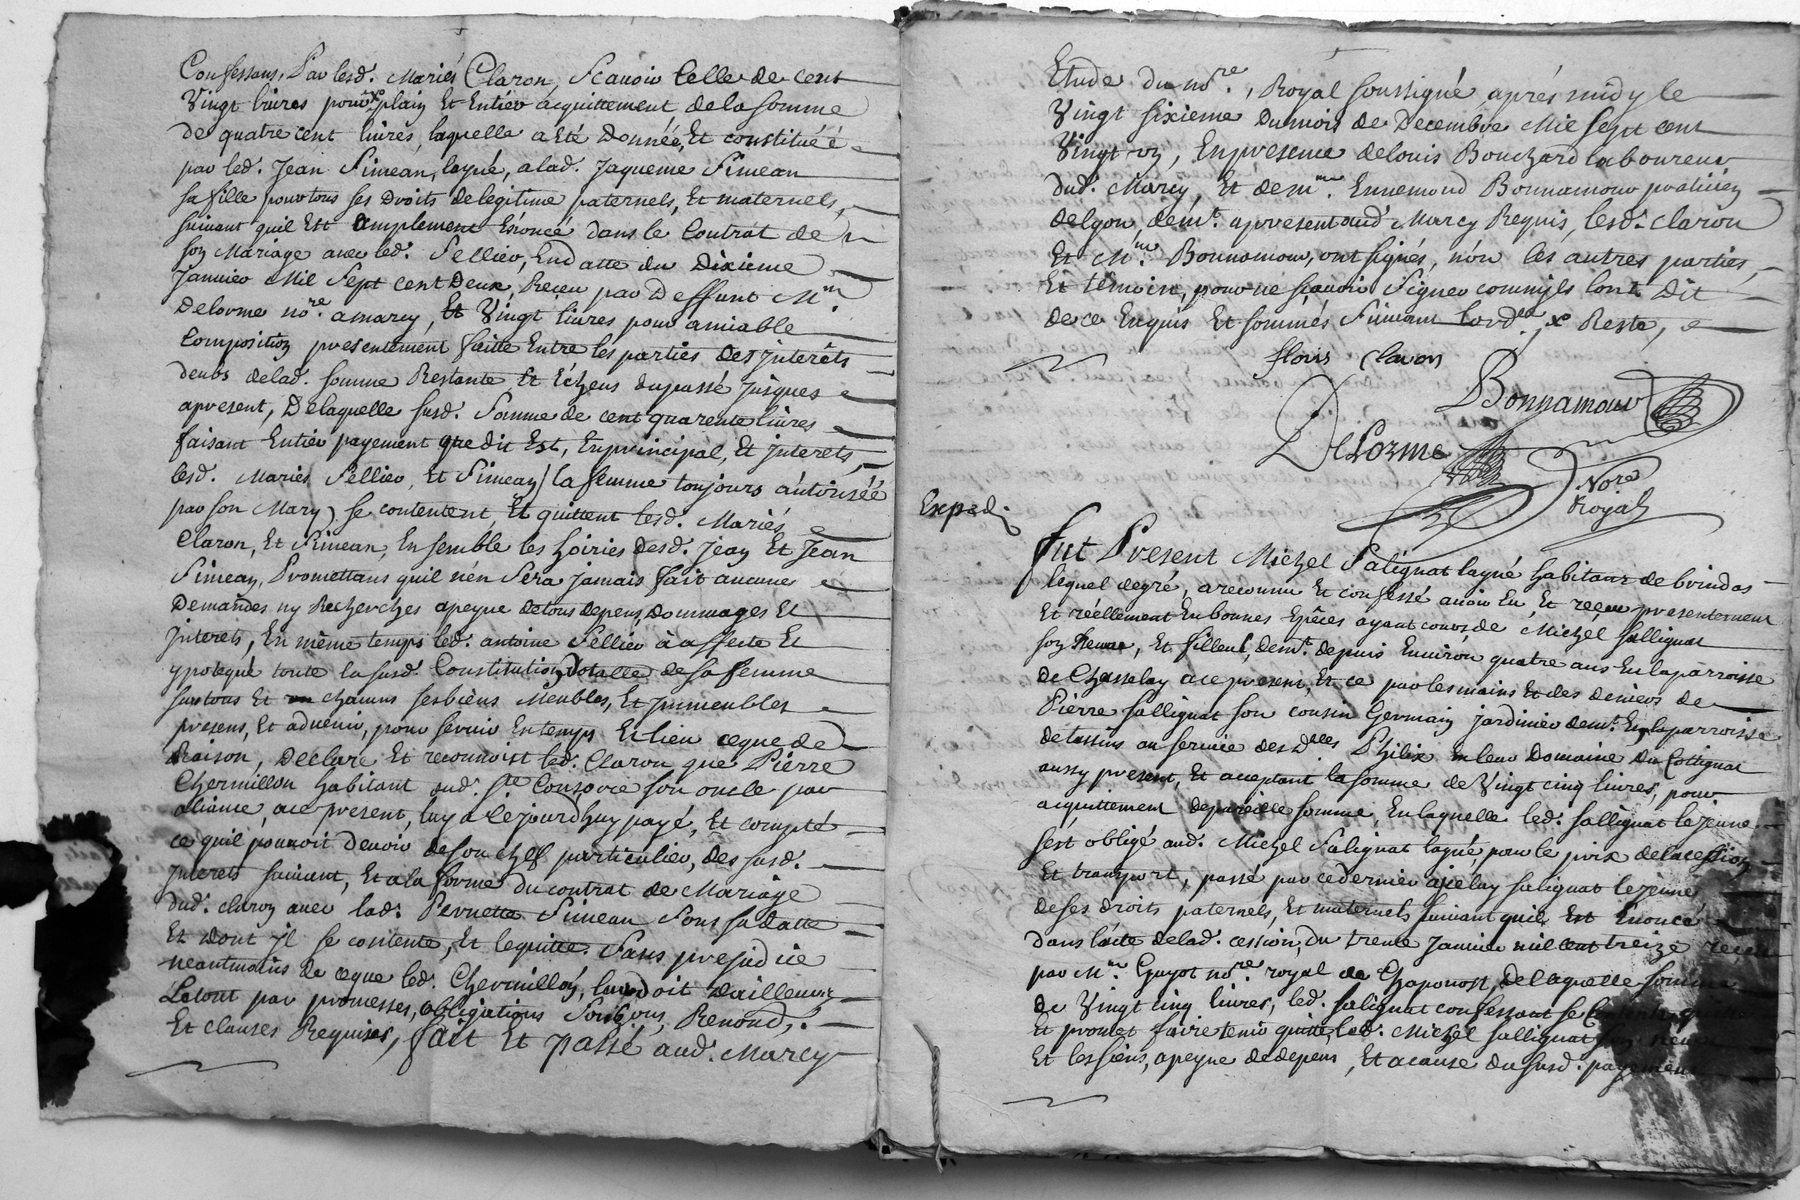 Confessans, Par lesd. Mariés Claron, Scauoir Celle de cent
Vingt liures pour plain Et Entier acquittement de la somme
de quatre cent liures, laquelle a Eté Donnée, Et constituéé
par led. Jean Simean, layné, a lad. Jaqueme Simean
sa fille pour tous ses Droits de legitime paternels, Et maternels,
suiuant quil Est amplement Enoncé dans le Contrat de
son Mariage auec led. Sellier, En datte du Dixieme
Januier Mil Sept cent Deux, Receu par Deffunt Me.
Delorme nore. a marcy, Et Vingt liures pour amiable
Composition presentement faitte Entre les parties des jnterêts
deubs de lad. somme Restante Et Echeus du passé jusques
a present, De laquelle susd. Somme de cent quarente liures
faisant Entier payement que dit Est, En principal, Et jnterets,
lesd. Mariés Sellier, Et Simean (la femme toujours autorisée
par son Mary) se contentent Et quittent lesd. Mariés
Claron, Et Simean, En semble les hoiries desd. Jean Et Jean
Simean, Promettans quil n'en Sera jamais fait aucunes
Demandes ny Recherches a peyne de tous depens, Dommages Et
Jnterets, En même temps led. antoine Sellier à affecté Et
ypotequé toute la susd. Constitution Dotalle de sa femme
sur tous Et chacuns ses biens Meubles, Et jmmeubles
presens, Et aduenir, pour seruir En temps Et lieu ce que de
Raison, Déclare Et reconnoist led. Claron que Pierre
Chermillon habitant aud. Ste Consorce son oncle par
aliance, a ce present, luy a cejourdhuy payé, Et compté
ce quil pouuoit deuoir de son chef particulier, des susd.
jnterets suiuant, Et a la forme du contrat de Mariage
dud. claron auec lad. Pernette Simean Sous sa datte
Et dont jl se contente, Et le quitte. Sans prejudice
neantmoins de ce que led. Chermillon, luy doit d'ailleurs
Le tout par promesses, obligations Soub̃ons, Renond.
Et clauses Requises, fait Et passé aud. Marcy
Etude du nore, Royal soussigné, aprés midy le
Vingt sixieme du mois de Decembre Mil sept cent
Vingt un, En presence de louis Bouchard laboureur
dud. Marcy, Et de me. Ennemond Bonnamour praticien
de lyon, demt. a present aud. Marcy Requis, lesd. Claron
Et Me. Bonnamour, ont signés, nón les autres parties,
Et témoin, pour ne sçauoir Signer comm'jls l'ont Dit
de ce Enquis Et sommés Suiuant l'ordce, x Reste,
floris Claron
Bonnamour
DeLorme
Nore
Royal
Exped.
Fut Present Michel Salignat layné habitant de brindas
lequel de gré, a reconnu Et confessé auoir Eu, Et reçeu presentement
Et réellement En bonnes Espéces ayant cours de Michel sallignat
son Neveu, Et filleul, demt. depuis Enuirón quatre ans En la parroisse
de Chasselay a ce present, Et ce par les mains Et des deniers de
Pierre sallignat son cousin Germain jardinier demt. En la parroisse
de tassins au seruice des Dlles Philix En leur Domaine du Cottignat
aussy present, Et acceptant la somme de Vingt cinq liures, pour
acquittement de pareille somme, En laquelle led. sallignat le jeune
s'est obligé aud. Michel Salignat layné, pour le prix de la cession
Et transport, passé par ce dernier a celuy salignat le jeune
de ses droits paternels, Et maternels suiuant quil Est Enoncé
dans l'acte de lad. cession, du trente Januier mil cent treize receu
par Me. Guyot nore. royal de Chaponost, De laquelle somme
de Vingt cinq liures, led. salignat confessant se contente, quitte
Et promet faire tenir quitte, led. Michel sallignat son neveu
Et les siens, a peyne de depens, Et a cause du susd. payement